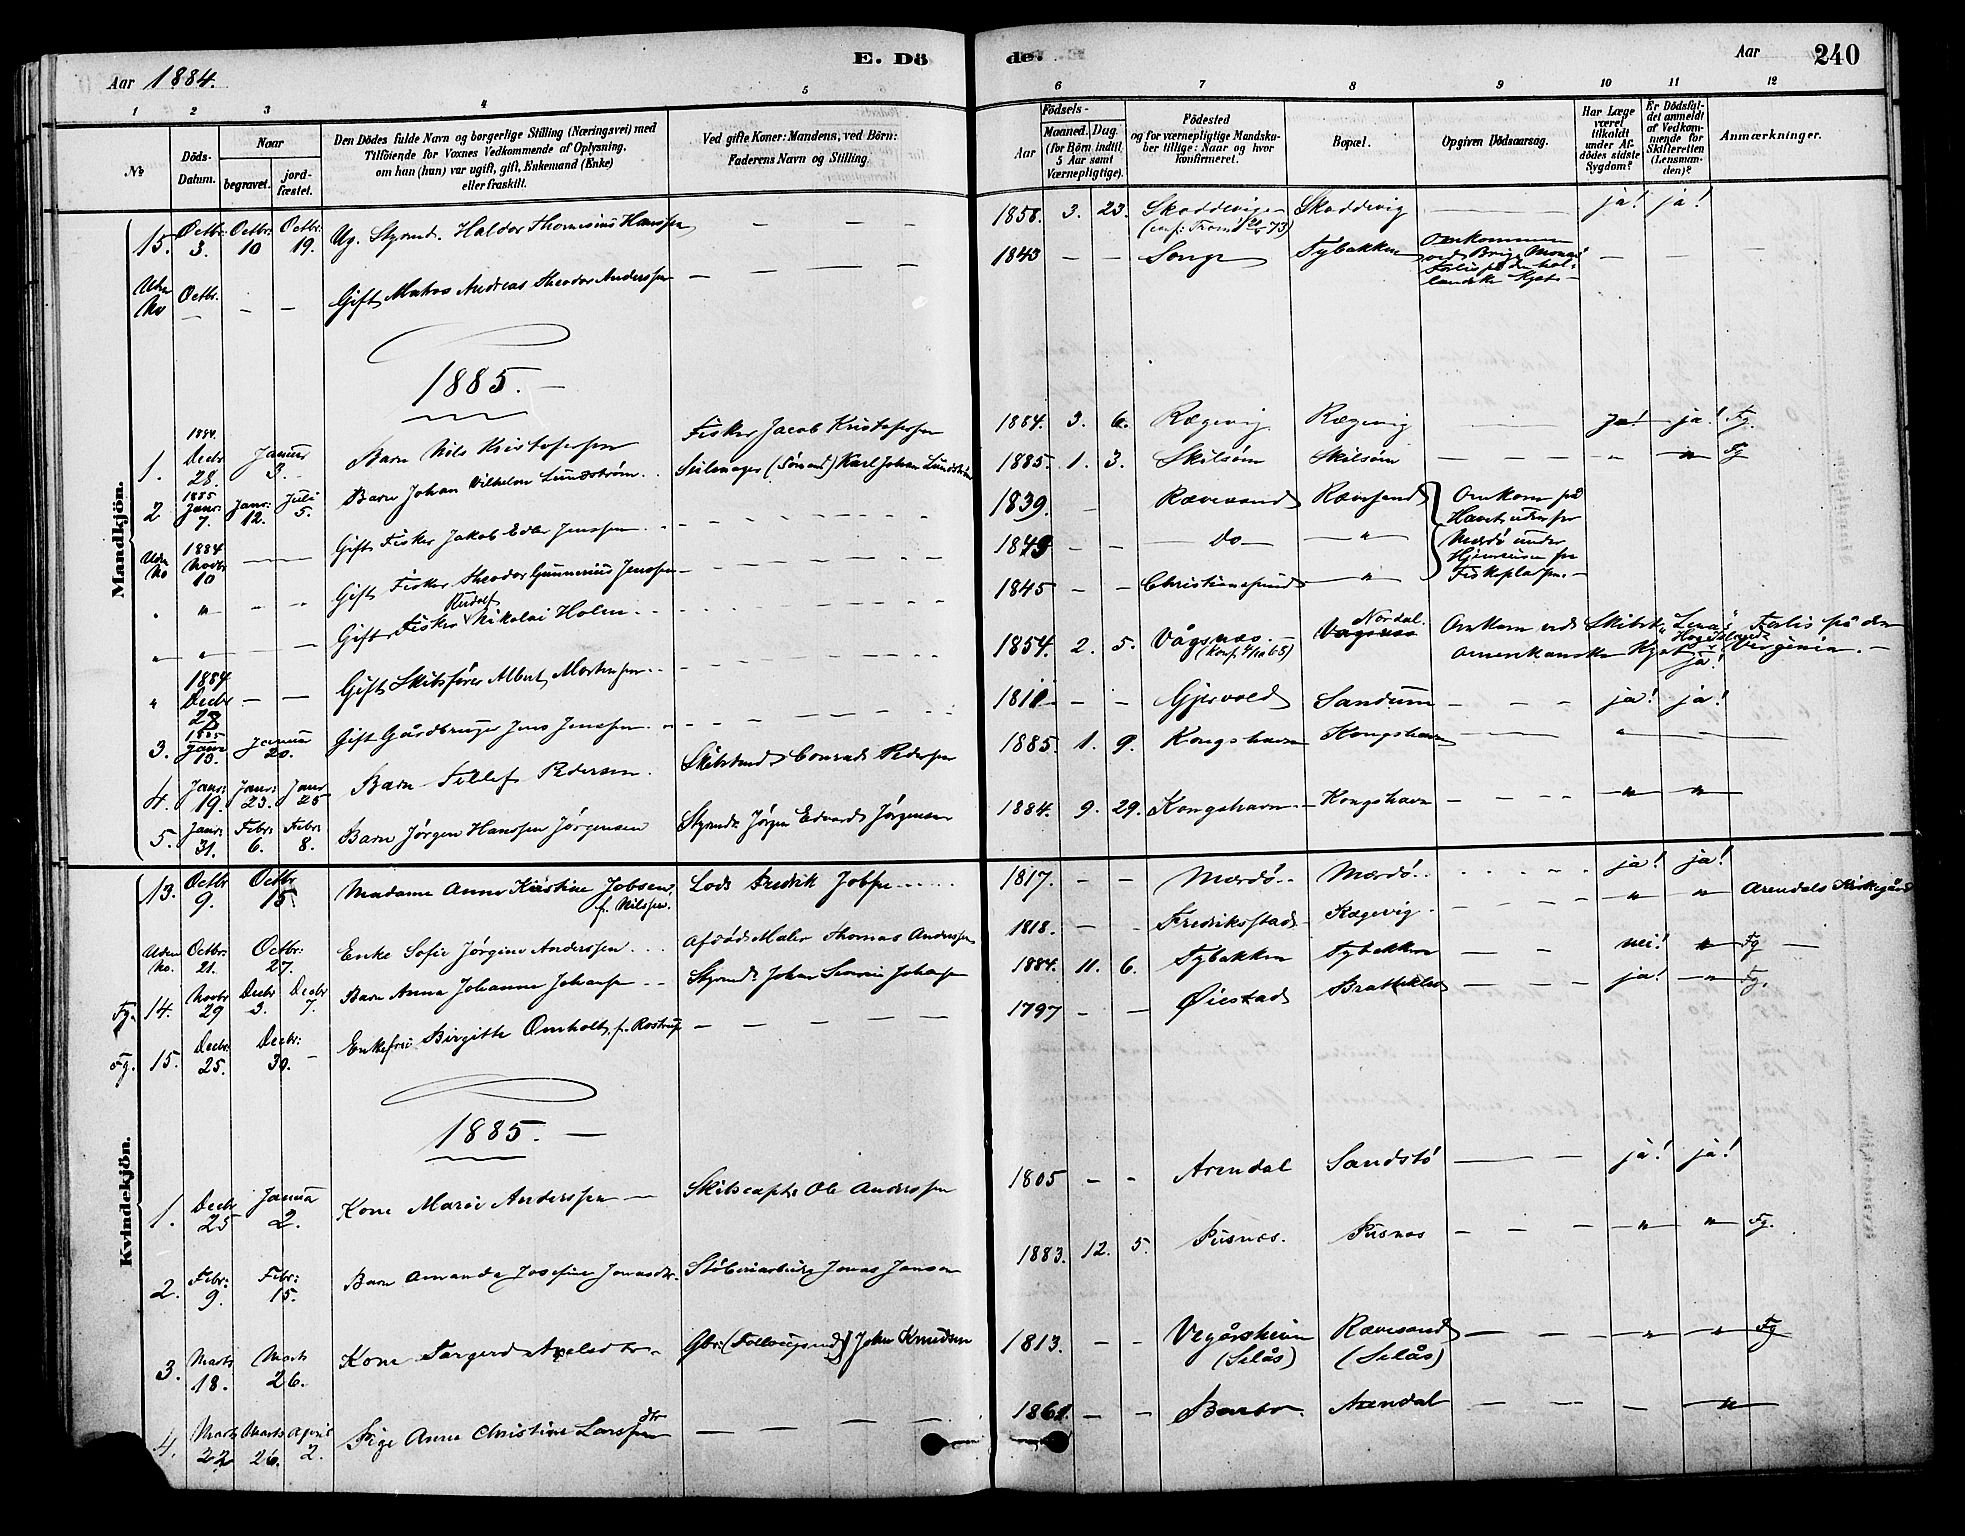 Aar 1884.
E. Dö
de.
Aar
240
1 2 3 4 5 6 7 8 9 10 11 12
No
Döds-Datum.
Naar
begravet.
jordfæstet.
Den Dödes fulde Navn og borgerlige Stilling (Næringsvei) med
Tilföiende for Voxnes Vedkommende af Oplysning,
om han (hun) var ugift, gift, Enkemand (Enke)
eller fraskilt.
Ved gifte Koner: Mandens, ved Börn:
Faderens Navn og Stilling.
Födsels-
Aar
Maaned. Dag.
(for Börn indtil
5 Aar samt
Værnepligtige).
Födested
og for værnepligtige Mandska-
ber tillige: Naar og hvor
konfirmeret.
Bopæl.
Opgiven Dödsaarsag.
Har Læge
været
tilkaldt
under Af-
dödes sidste
Sygdom?
Er Dödsfal-
det anmeldt
af Vedkom-
mende for
Skifteretten
(Lensman-
den)?
Anmærkninger.
Mandkjön.
15. Octbr. 3. Octbr. 10 Octbr. 19. Ug. Styrmd. Haldor Thomesius Hanssen — — — 1858. 3. 23. Skaddevigen Skaddevig — ja! ja!
Uden No Octbr. — — — Gift Matros Andreas Theodor Anderssen — — — 1843 — — Songe Tybakken Omkommen
ved Brig
Forlis på den hol-
landske Kyst — — —
1885. —
1. 1884. Decbr 28. Januar 3. Barn Nils Kristofersen Fisker Jacob Kristofersen 1884. 3. 6. Rægevig Rægevig — ja! ja! Fg.
2 1885 Janr. 7. Janr: 12. Juli 5. Barn Johan Vilhelm Lundstrøm. Seilmager (Sømand) Karl Johan Lundstrøm 1885. 1. 3. Skilsøm Skilsøm — — — " " Fg
Uden No 1884 Novbr 10 — — Gift Fisker Jakob Edler Jenssen 1839. — Rævesand Rævesand Omkom på
Havet udenfor
" " " " Gift Fisker Theodor Gunnerius Jenssen 1849 — — — do — " Mærdø under
Hjemreisen fra
" " — Gift Fisker Rudolf Nikolai Holm 1845 — — Christianssund " Fiskepladsen. —
" 1884 Decbr 28 — — Gift Skibsfører Albert Mortensen 1854. 2. 5. Vågsnæs. — Nordal. Omkom ved Skibet "Lena"s Forlis på den
amerikanske Kyst ved Virginia. —
ja!
3. 1885 Janr 13. Januar 20. Gift Gårdbruger Jens Jenssen 1811 — — Gjervold Sandum — — — ja! ja!
4. Janr: 19. Janr: 23. Janr 25 Barn Tellef Pedersen. Skibstmd Conrad Pedersen 1885. 1. 9. Kongshavn Kongshavn — " — —
5. Janr: 31. Febr: 6. Febr: 8. Barn Jørgen Hanssen Jørgensen Styrmd. Jørgen Edvard Jørgensen 1884. 9. 29. Kongshavn. Kongshavn — — — " "
Kvindekjön.
13. Octbr 9. Octbr 15. Madame Anne Kirstine Jobsen,
f. Nilssen. Lods Fredrik Jobsen 1817. — — Mærdö. Mærdö. ja! ja!
Uden No. Octbr: 21. Octbr: 27. Enke Sofie Jørgine Anderssen. Afdød Maler Thomas Anderssen 1818. — — Fredriksstad Rægevig. " " Arendals Kirkegård
Fg. 14. Novbr 29 Decbr 3. Decbr 7. Barn Anna Johanne Johansen Styrmd. Johan Johansen 1884. 11. 6. Tybakken Tybakken — — nei! " Fg —
Fg. 15. Decbr: 25. Decbr: 30. — Enkefru Birgitte Omholt, f. Rostrup — — — — — 1797 — — Øiestad Bratteklev — — — ja! " Fg.
1885. —
1. Decbr 25 Januar 2. Kone Marie Anderssen — Skibscapt. Ole Anderssen 1805 — — Arendal Sandstö — — ja! ja!
2. Febr: 9. Febr: 15. Barn Amanda Josefine Jonasdtr. Støberiarbeider Jonas Jansen 1883. 12. 5. Pusnæs. Pusnæs — — — " " Fg.
3. Marts 18. Marts 26. Kone Targerd Axelsdtr. Gbr: John Knudsen 1813. — — Vegårsheien
(Selås) Rævesand
(Selås) — — — " " Fg
4. Marts 22 Marts 26. April 2. Pige Anne Christine Larssdtr — — — 1861. — — Barbo. Arendal — — — "